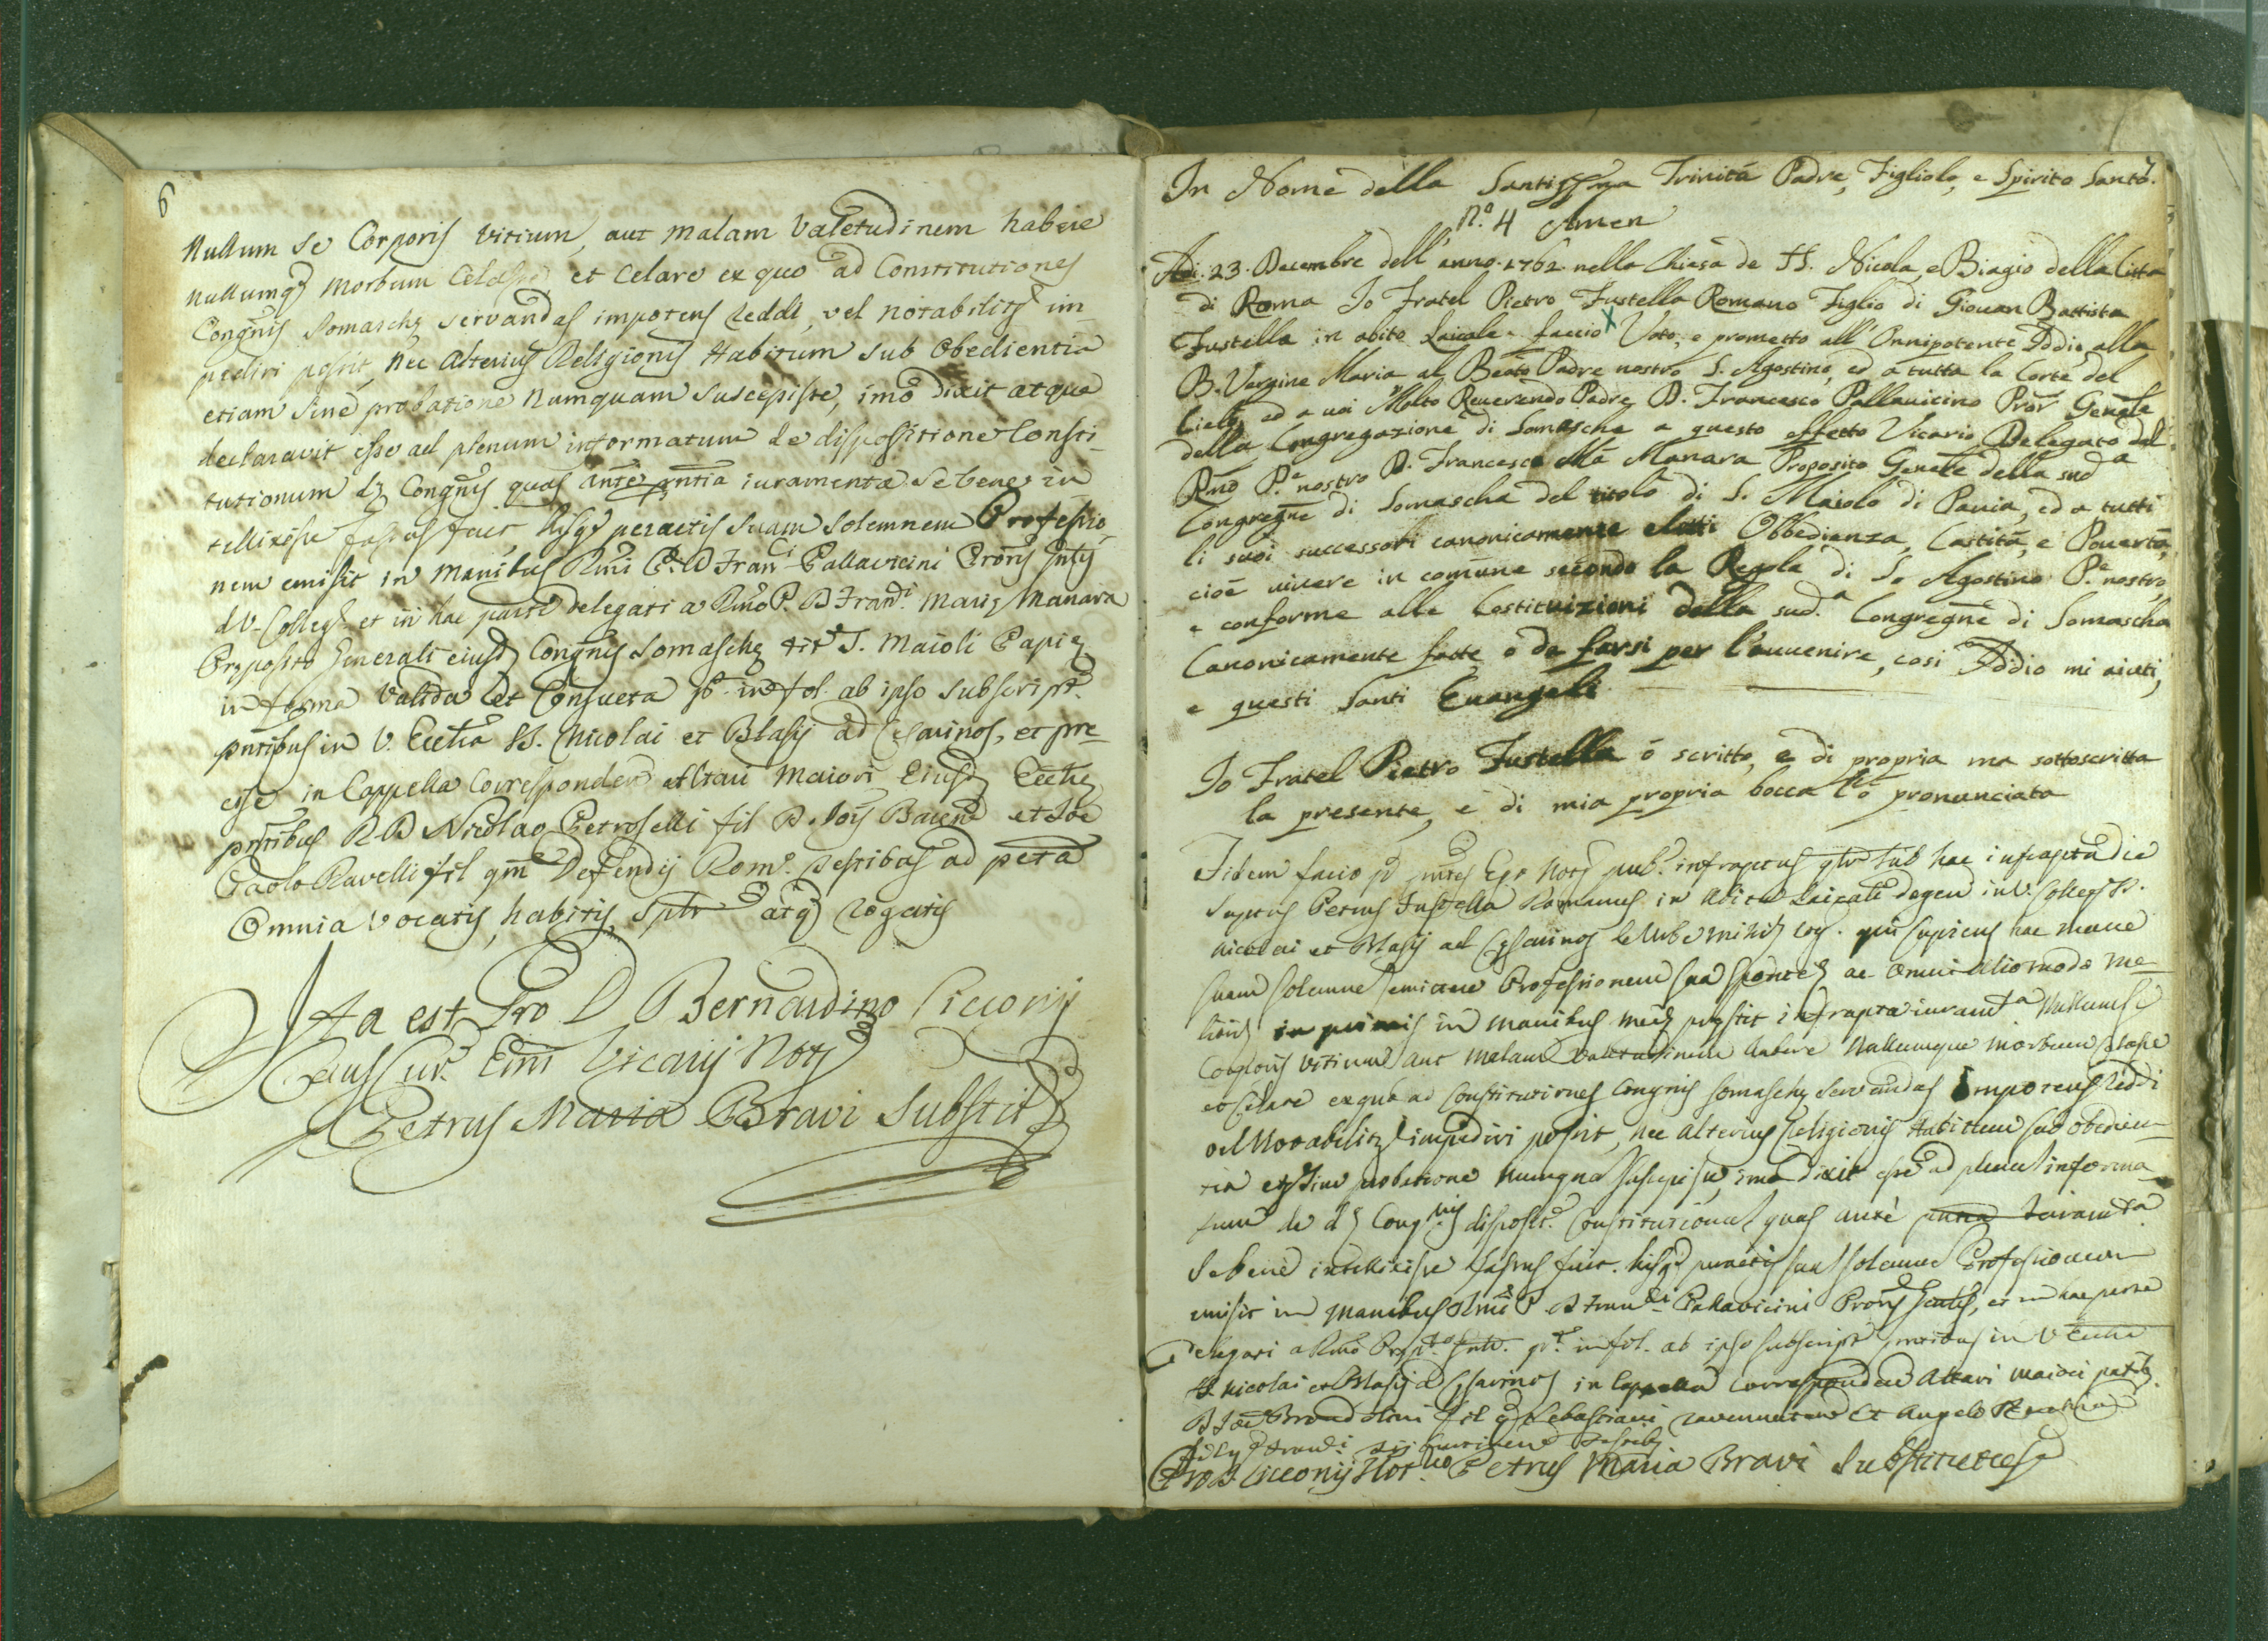 6
Nullum se Corporis vitium, aut malam Valetudinem habere
nullumq3 morbum Celasse, et celare ex quo ad Constitutiones
Congnis Somaschę servandas impotens reddi, vel notabilitr im-
pediri possit, nec alterius Religionis Habitum sub Obedientia
etiam sine probatione numquam suscepisse, imò dixit atque
declaravit esse ad plenum informatum de dispositione Consti-
tutionum dę Congnis quas ante pntia iuramenta se bene in
tellixisse fassus fuit, hisq3 peractis suam solemnem Professio-
nem emisit in manibus Rmi P. D Franci Pallavicini Proris gnlis
d V. Collegij et in hac parte delegati a Rmo P. D Frandi. Marię Manara
Pręposito Generali eiusd Congnis Somaschę tit S. Maioli Papię
in forma valida et Consueta pt. in fol. ab ipso subscript.
pntibus in V. Ecctia SS. Nicolai et Blasij ad Cesarinos, et pre-
cise in Cappella Corresponden Altari Maiori Eiusd Ecctię
pntibus R. D Nicolao Petroselli fil D. Jois Baren et Joe
Paolo Ravelli fil qm Defendij Rom. testibus ad pcta
Omnia vocatis, habitis, sptr atq3 rogatis
Ita est Pro D Bernardino Cicconij
Caus Cur. Emi Vicarij Not3
Petrus Maria Bravi Substit
In Nome della Santissima Trinità Padre, Figliolo, e Spirito Santo.
N.o 4 Amen
Adi. 23. Decembre dell'anno. 1762. nella Chiesa de SS. Nicola, e Biagio della Citta
di Roma Io Fratel Pietro Fustella Romano Figlio di Giouan Battista
Fustella in abito Laicale. faccio X Voto, e prometto all'Onnipotente Iddio alla
B. Vergine Maria al Beato Padre nostro S. Agostino, ed a tutta la Corte del
Cielo, ed a uoi Molto Reuerendo Padre D. Francesco Pallauicino Pror Genãle
della Congregazione di Somasche a questo effetto Vicario Delegato dal
Rmo P.e nostro D. Francesco Ma Manara Proposito Genãle della sud.a
Congregne di Somascha del titolo di S. Maiolo di Pauia, ed a tutti
li suoi successori canonicamente eletti Obbedienza, Castità, e Pouertà,
cioè uiuere in comune secondo la Regola di S. Agostino P.e nostro,
e conforme alle Costituizioni della sud.a Congregne di Somascha
Canonicamente fatte o da farsi per l'auuenire, così Iddio mi aiuti,
e questi Santi Euangeli.
Io Fratel Pietro Fustella ò scritto, e di propria ma sottoscritta
la presente, e di mia propria bocca l'ò pronunciata
Fidem facio pt pntes Ego Not3 pub. infraptus qlr sub hac infrapta die
Suptus Petrus Fustella Romanus in Abitu Laicali degen in V. Colleg SS.
Nicolai et Blasij ad Cęsarinos
suam solemne emictere Professionem sua sponte, ac omni alio modo me-
liori in primis in manibus meis pręstit infrapta iuramta Nullum se
Corporis vitium aut malam Valetudinem habere Nullumque morbum celasse
et celare ex quo ad Constitutiones Congnis Somaschę servandas Impotens reddi
vel Notabilitr impediri possit, nec alterius Religionis Habitum sub obedien-
tia etę sine probatione numqua suscepisse, imo dixit esse ad plenu informa-
tum de dę Congnis disposit. Constitutionu quas antè pntia iuramta
Se bene intellixisse fassus fuit. hisq3 peractis sua solemne Professionem
emisit in manibus Rmi P. D Franci Pallavicini Proris Gnalis, et in hac parte
Delegati a Rmo Pręp.to Gnli. pt. in fol. ab ipso subscript pntibus in V Ecctia
SS Nicolai et Blasij ad Cęsarinos in Cappella Corresponden Altari maiori pntibs.
D Joe fil q Sebastiani ravennaten Et Angelo
testibs
Pro D. Cicconij Not.rio Petrus Maria Bravi Substitutus